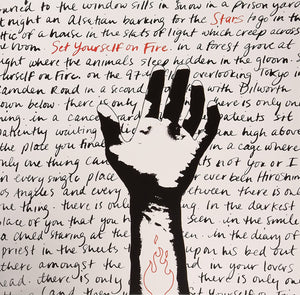 urned to the window sills in snow in a prison yard
t night an Alsatian barking for the Stars logo in the
tic of a house in the slats of light which creep across
he room. Set Yourself on Fire. in a forest grove at
ight where the animals sleep hidden in the gloom. S
urself on Fire. on the 97th overlooking Tokyo
amden Road in a second with Dilworth
own below. there is only there is only on
hing. in a cancer ward patients sit
patiently waiting high above
the place you final in a cage where
only one thing can not you or I
in every single place ever been throughin
os Angeles and every between there is onl
ne thing. there is only In the darkest
lace of you that you h seen. in the smile
a child staring at the in the diary of
priest in the sheets upon his bed out
there amongst the d in your lovers
ead. there is only there is only